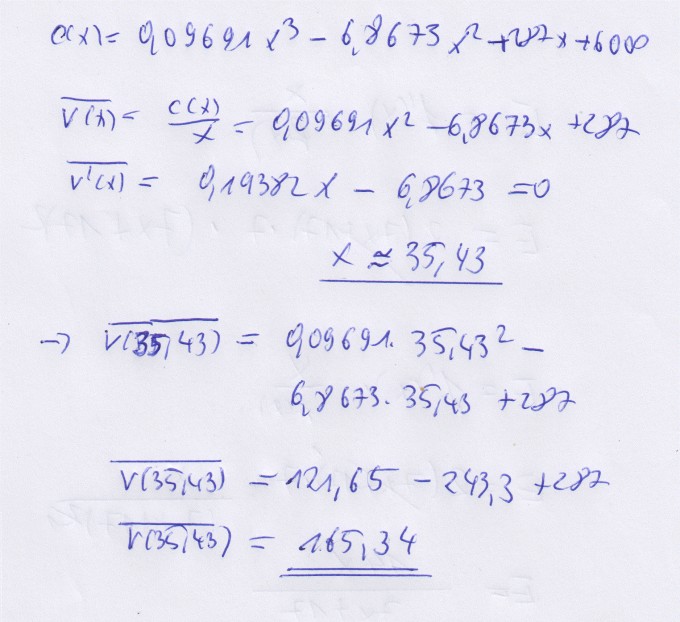 C(x) = 0,09691 x³ - 6,8673 x² + 287x + 6000
V(x) = C(x)/x = 0,09691 x² - 6,8673x + 287
V'(x) = 0,19382 x - 6,8673 = 0
x ≈ 35,43
→ V(35,43) = 0,09691 · 35,43² -
6,8673 · 35,43 + 287
V(35,43) = 121,65 - 243,3 + 287
V(35,43) = 165,34